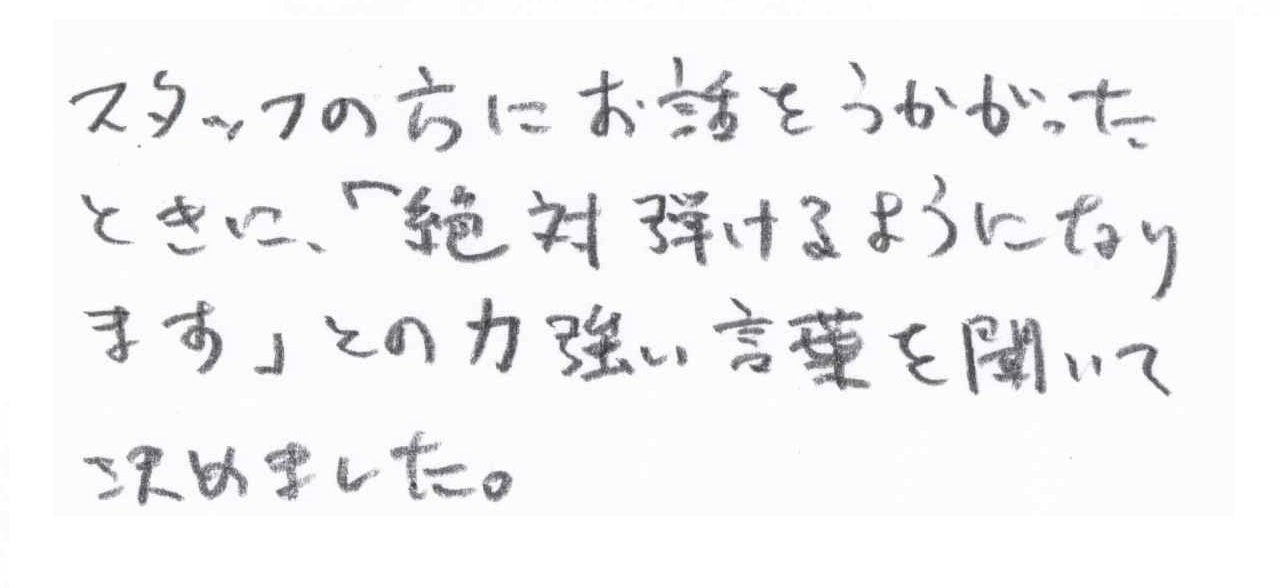 スタッフの方にお話をうかがった
ときに、「絶対弾けるようになり
ます」との力強い言葉を聞いて
決めました。